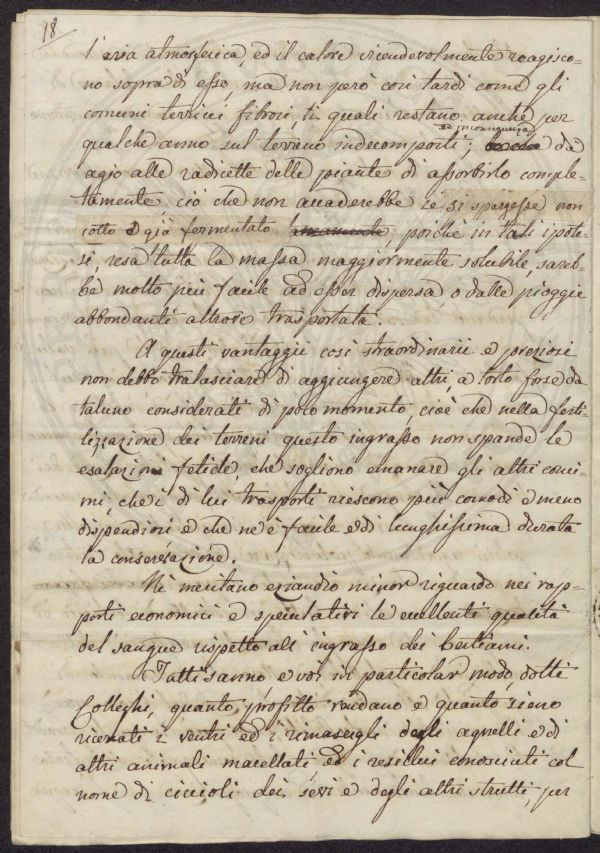 18
l'aria atmosferica, ed il calore vicendevolmente reagisco-
no sopra di esso, ma non però così tardi come gli
comuni terricci fibrosi, li quali restano anche per
qualche anno sul terreno indecomposti; ed in conseguenza dà
agio alle radicette delle piante di assorbirlo comple-
tamente, ciò che non accaderebbe se si spargesse non
cotto e già fermentato, poichè in tali ipote-
si, resa tutta la massa maggiormente solubile, sareb-
be molto più facile ad esser dispersa, o dalle pioggie
abbondanti altrove trasportata.
A questi vantaggii così straordinarii e preziosi
non debbo tralasciare di aggiungere altri, a torto forse da
taluno considerati di poco momento, cioè che nella ferti-
lizzazione dei terreni questo ingrasso non spande le
esalazioni fetide, che sogliono emanare gli altri conci-
mi, che i di lui trasporti riescono più comodi e meno
dispendiosi e che ne è facile e di lunghissima durata
la conservazione.
Nè meritano eziandio minor riguardo nei rap-
porti economici e speculativi le eccellenti qualità
del sangue rispetto all'ingrasso dei bestiami.
Tutti sanno e voi in particolar modo, dotti
Colleghi, quanto profitto rendano e quanto sieno
ricercati i ventri ed i rimasugli degli agnelli e di
altri animali macellati, ed i residui conosciuti col
nome di ciccioli dei sevi e degli altri strutti, per